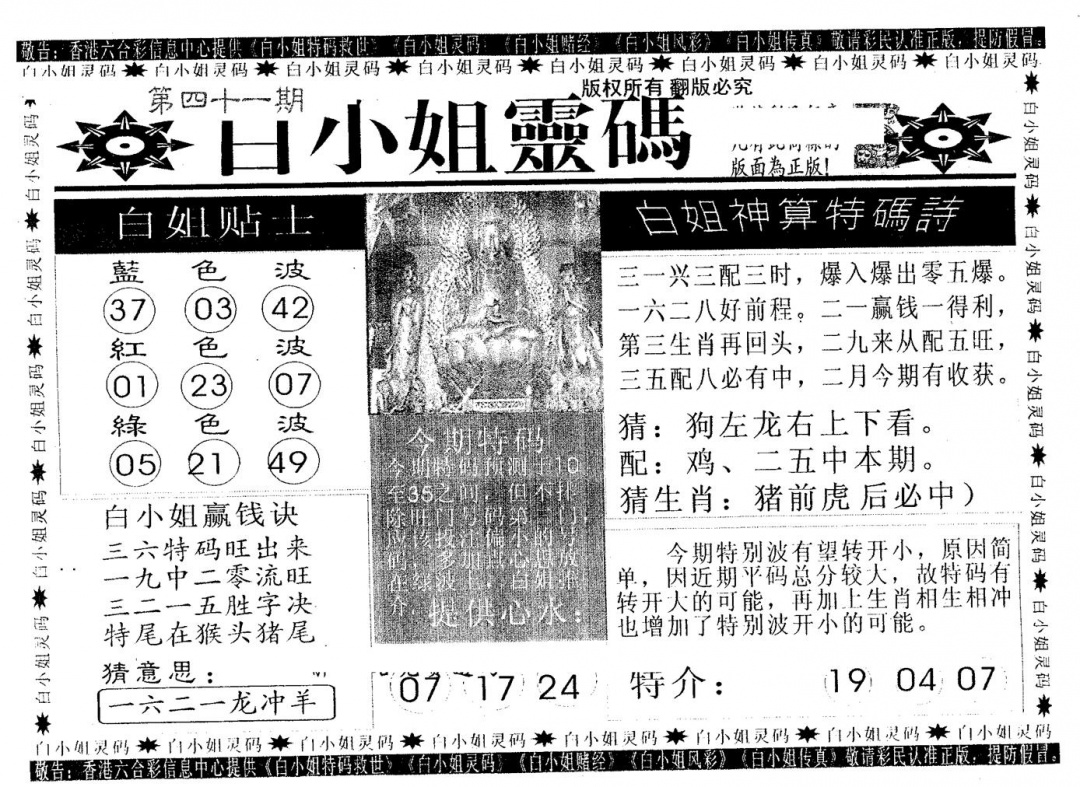 敬告：香港六合彩信息中心提供《白小姐特码救世》《白小姐灵码》《白小姐赌经》《白小姐风彩》《白小姐传真》敬请彩民认准正版，提防假冒。
白小姐灵码 白小姐灵码 白小姐灵码 白小姐灵码 白小姐灵码 白小姐灵码 白小姐灵码 白小姐灵码
版权所有 翻版必究
第四十一期
白小姐靈碼
版面為正版！
白姐贴士
藍色波
37 03 42
紅色波
01 23 07
綠色波
05 21 49
白小姐赢钱诀
三六特码旺出来
一九中二零流旺
三二一五胜字决
特尾在猴头猪尾
猜意思：
一六二一龙冲羊
今期特码
今期特码预测于10
至35之间，但不排
提供心水：
07 17 24
白姐神算特碼詩
三一兴三配三时，爆入爆出零五爆。
一六二八好前程。二一赢钱一得利，
第三生肖再回头，二九来从配五旺，
三五配八必有中，二月今期有收获。
猜：狗左龙右上下看。
配：鸡、二五中本期。
猜生肖：猪前虎后必中）
今期特别波有望转开小，原因简
单，因近期平码总分较大，故特码有
转开大的可能，再加上生肖相生相冲
也增加了特别波开小的可能。
特介： 19 04 07
白小姐灵码 白小姐灵码 白小姐灵码 白小姐灵码 白小姐灵码
白小姐灵码 白小姐灵码 白小姐灵码 白小姐灵码 白小姐灵码
白小姐灵码 白小姐灵码 白小姐灵码 白小姐灵码 白小姐灵码 白小姐灵码 白小姐灵码 白小姐灵码
敬告：香港六合彩信息中心提供《白小姐特码救世》《白小姐灵码》《白小姐赌经》《白小姐风彩》《白小姐传真》敬请彩民认准正版，提防假冒